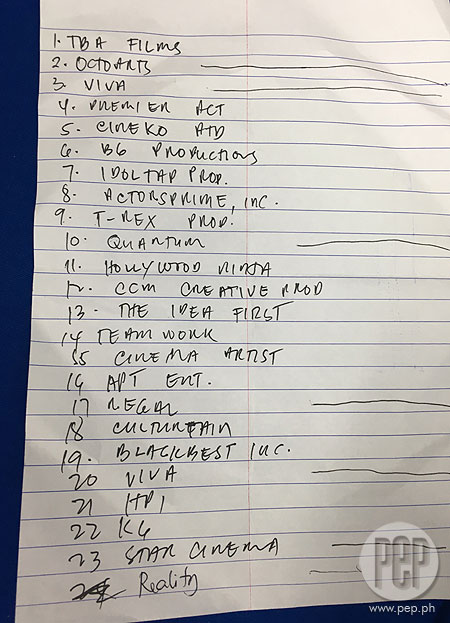 1. TBA FILMS
2. OCTOARTS
3. VIVA
4. PREMIER ACT
5. CINEKO ATD
6. BG PRODUCTIONS
7. IDOLTAP PROD.
8. ACTORSPRIME, INC.
9. T-REX PROD.
10. QUANTUM
11. HOLLYWOOD NINJA
12. CCM CREATIVE PROD
13. THE IDEA FIRST
14 TEAMWORK
15 CINEMA ARTIST
16 APT ENT.
17 REGAL
18 CULTURTAIN
19. BLACKBEST INC.
20 VIVA
21 HPI
22 KG
23 STAR CINEMA
24 Reality
PEP
www.pep.ph